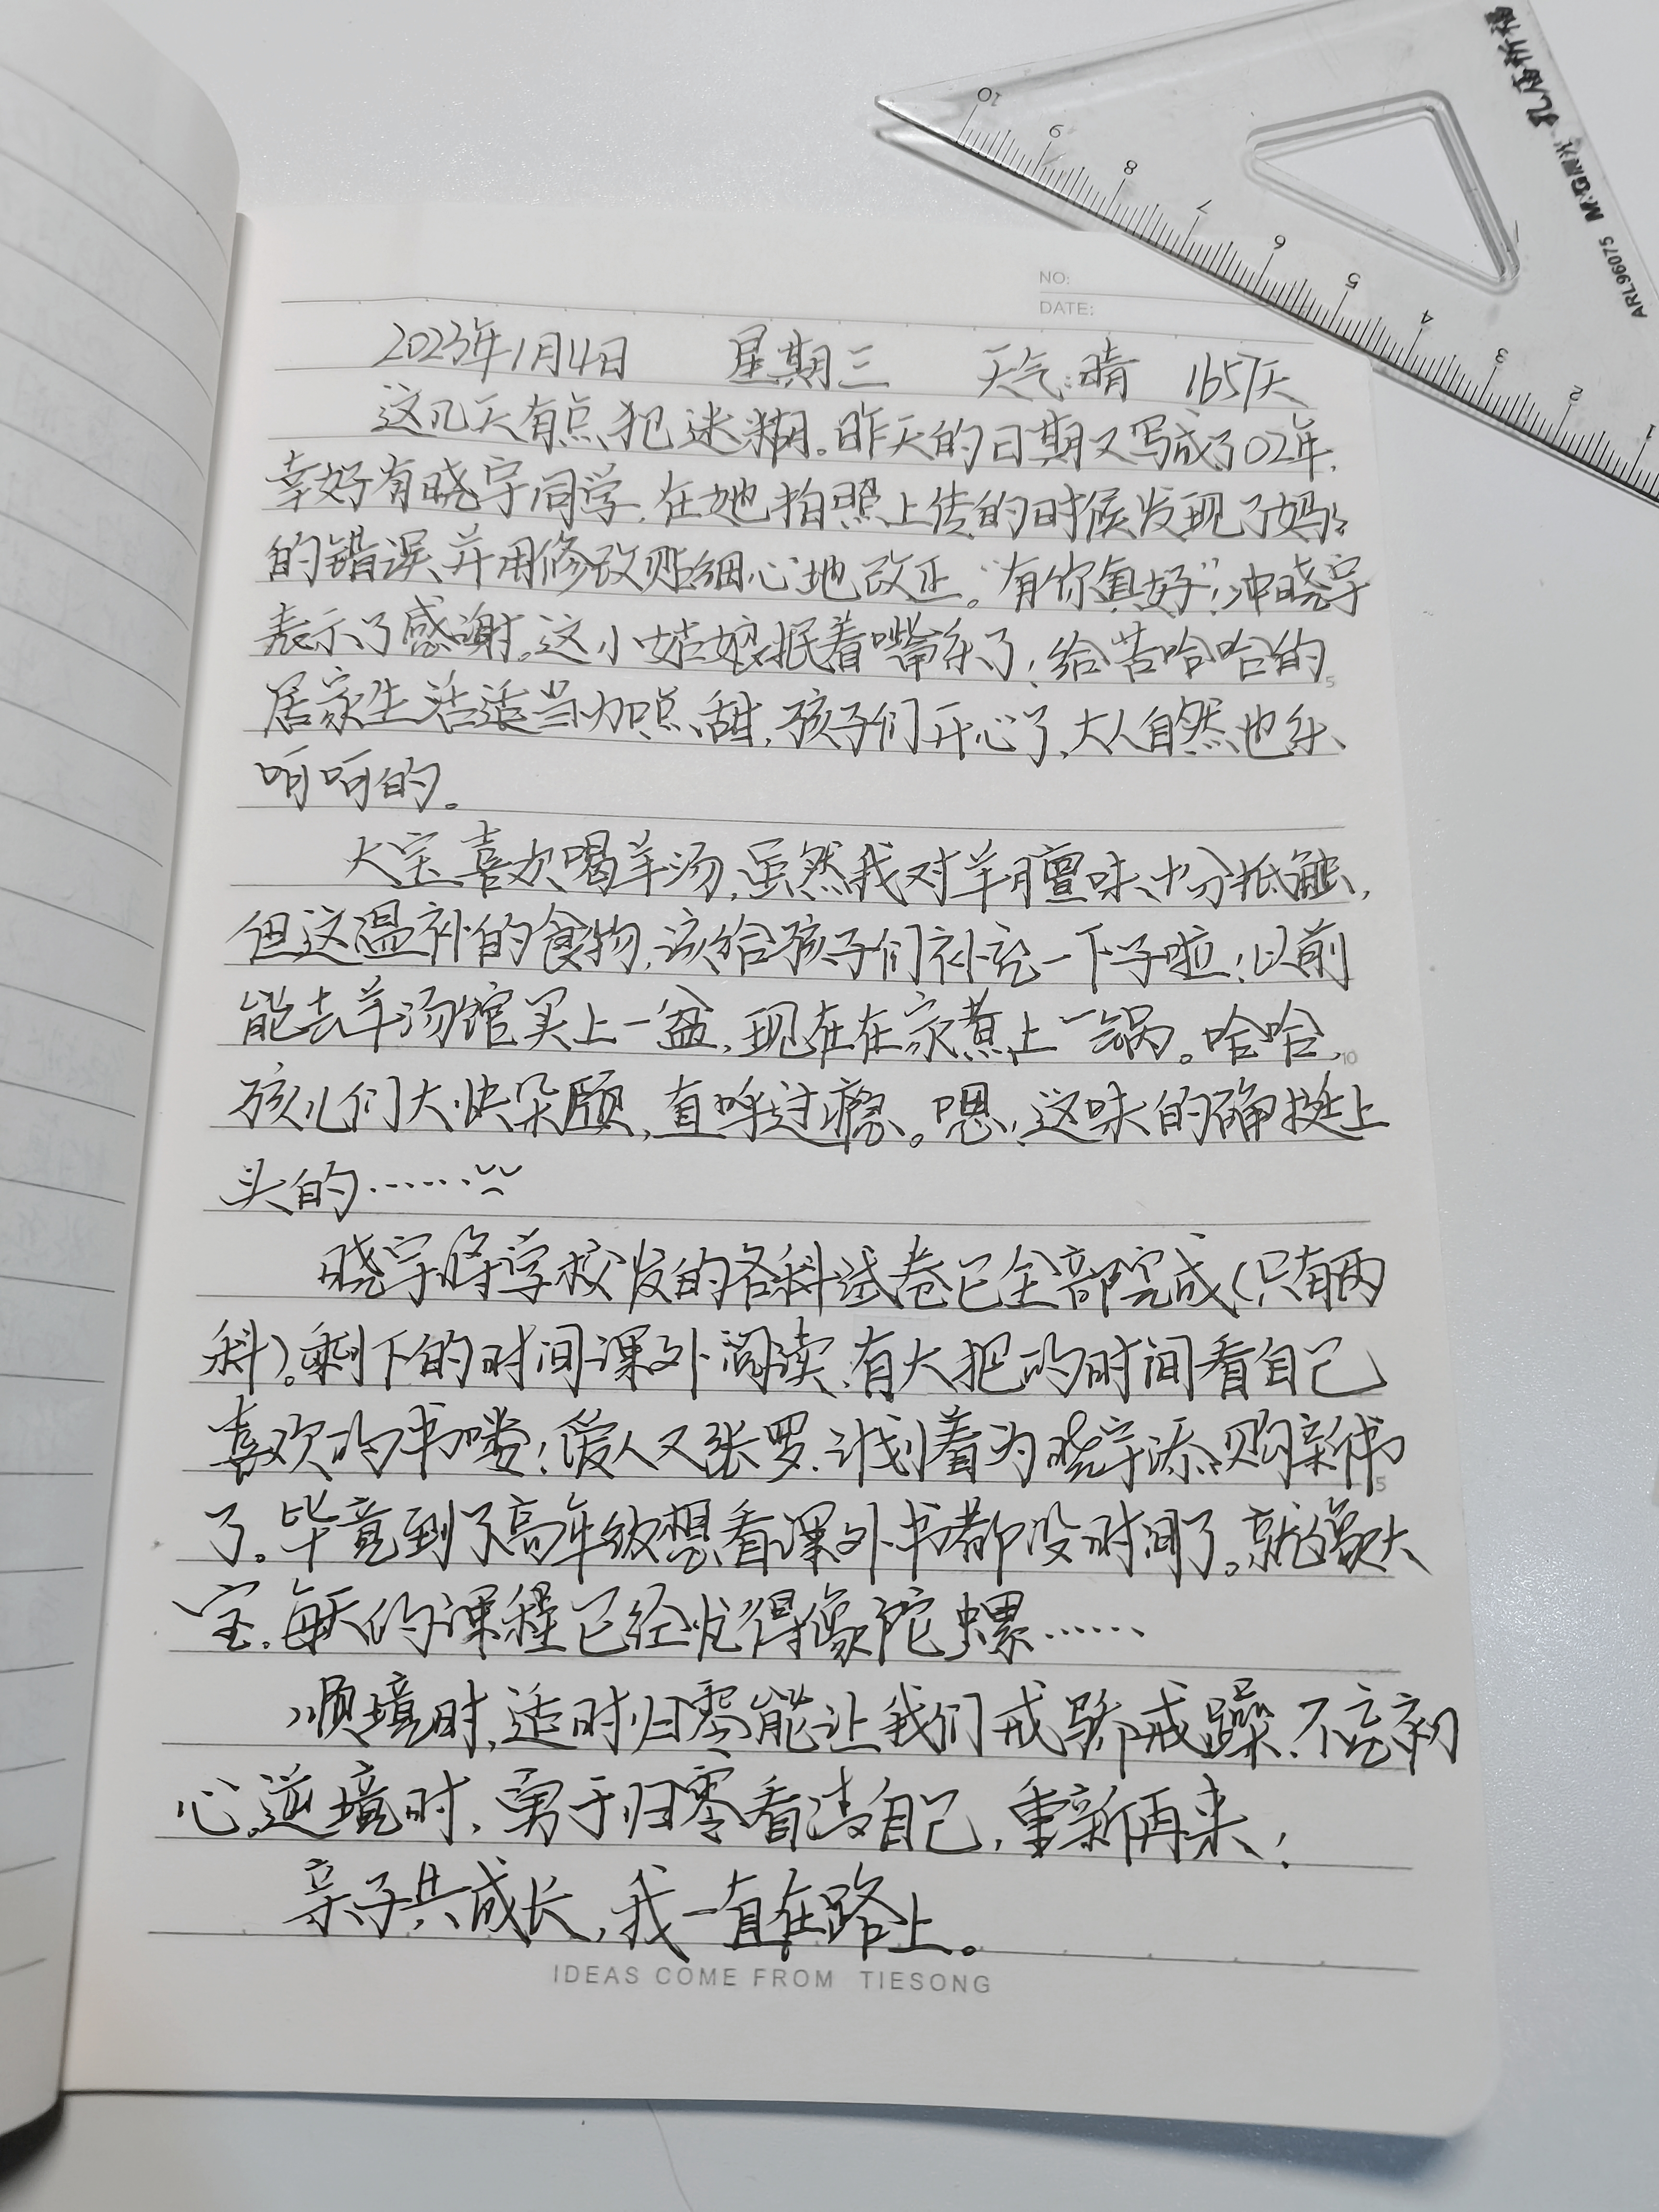 孔庙祈福
M&G晨光
ARL96075
10
9
8
7
6
5
4
3
2
1
NO:
DATE:
2023年1月4日 星期三 天气:晴 1657天
这几天有点犯迷糊。昨天的日期又写成了02年,
幸好有晓宇同学,在她拍照上传的时候发现了妈妈
的错误,并用修改贴细心地改正。“有你真好”!冲晓宇
表示了感谢。这小姑娘抿着嘴乐了!给苦哈哈的
5
居家生活适当加点甜,孩子们开心了,大人自然也乐
呵呵的。
大宝喜欢喝羊汤,虽然我对羊膻味十分抵触,
但这温补的食物,该给孩子们补充一下子啦!以前
能去羊汤馆买上一盆,现在在家煮上一锅。哈哈,
10
孩儿们大快朵颐,直呼过瘾。嗯,这味的确挺上
头的……
晓宇将学校发的各科试卷已全部完成(只有两
科)。剩下的时间课外阅读,有大把的时间看自己
喜欢的书喽!爱人又张罗,计划着为晓宇添购新书
5
了。毕竟到了高年级想看课外书都没时间了。就像大
宝,每天的课程已经忙得像陀螺……
顺境时,适时归零能让我们戒骄戒躁,不忘初
心。逆境时,勇于归零看清自己,重新再来!
亲子共成长,我一直在路上。
IDEAS COME FROM TIESONG